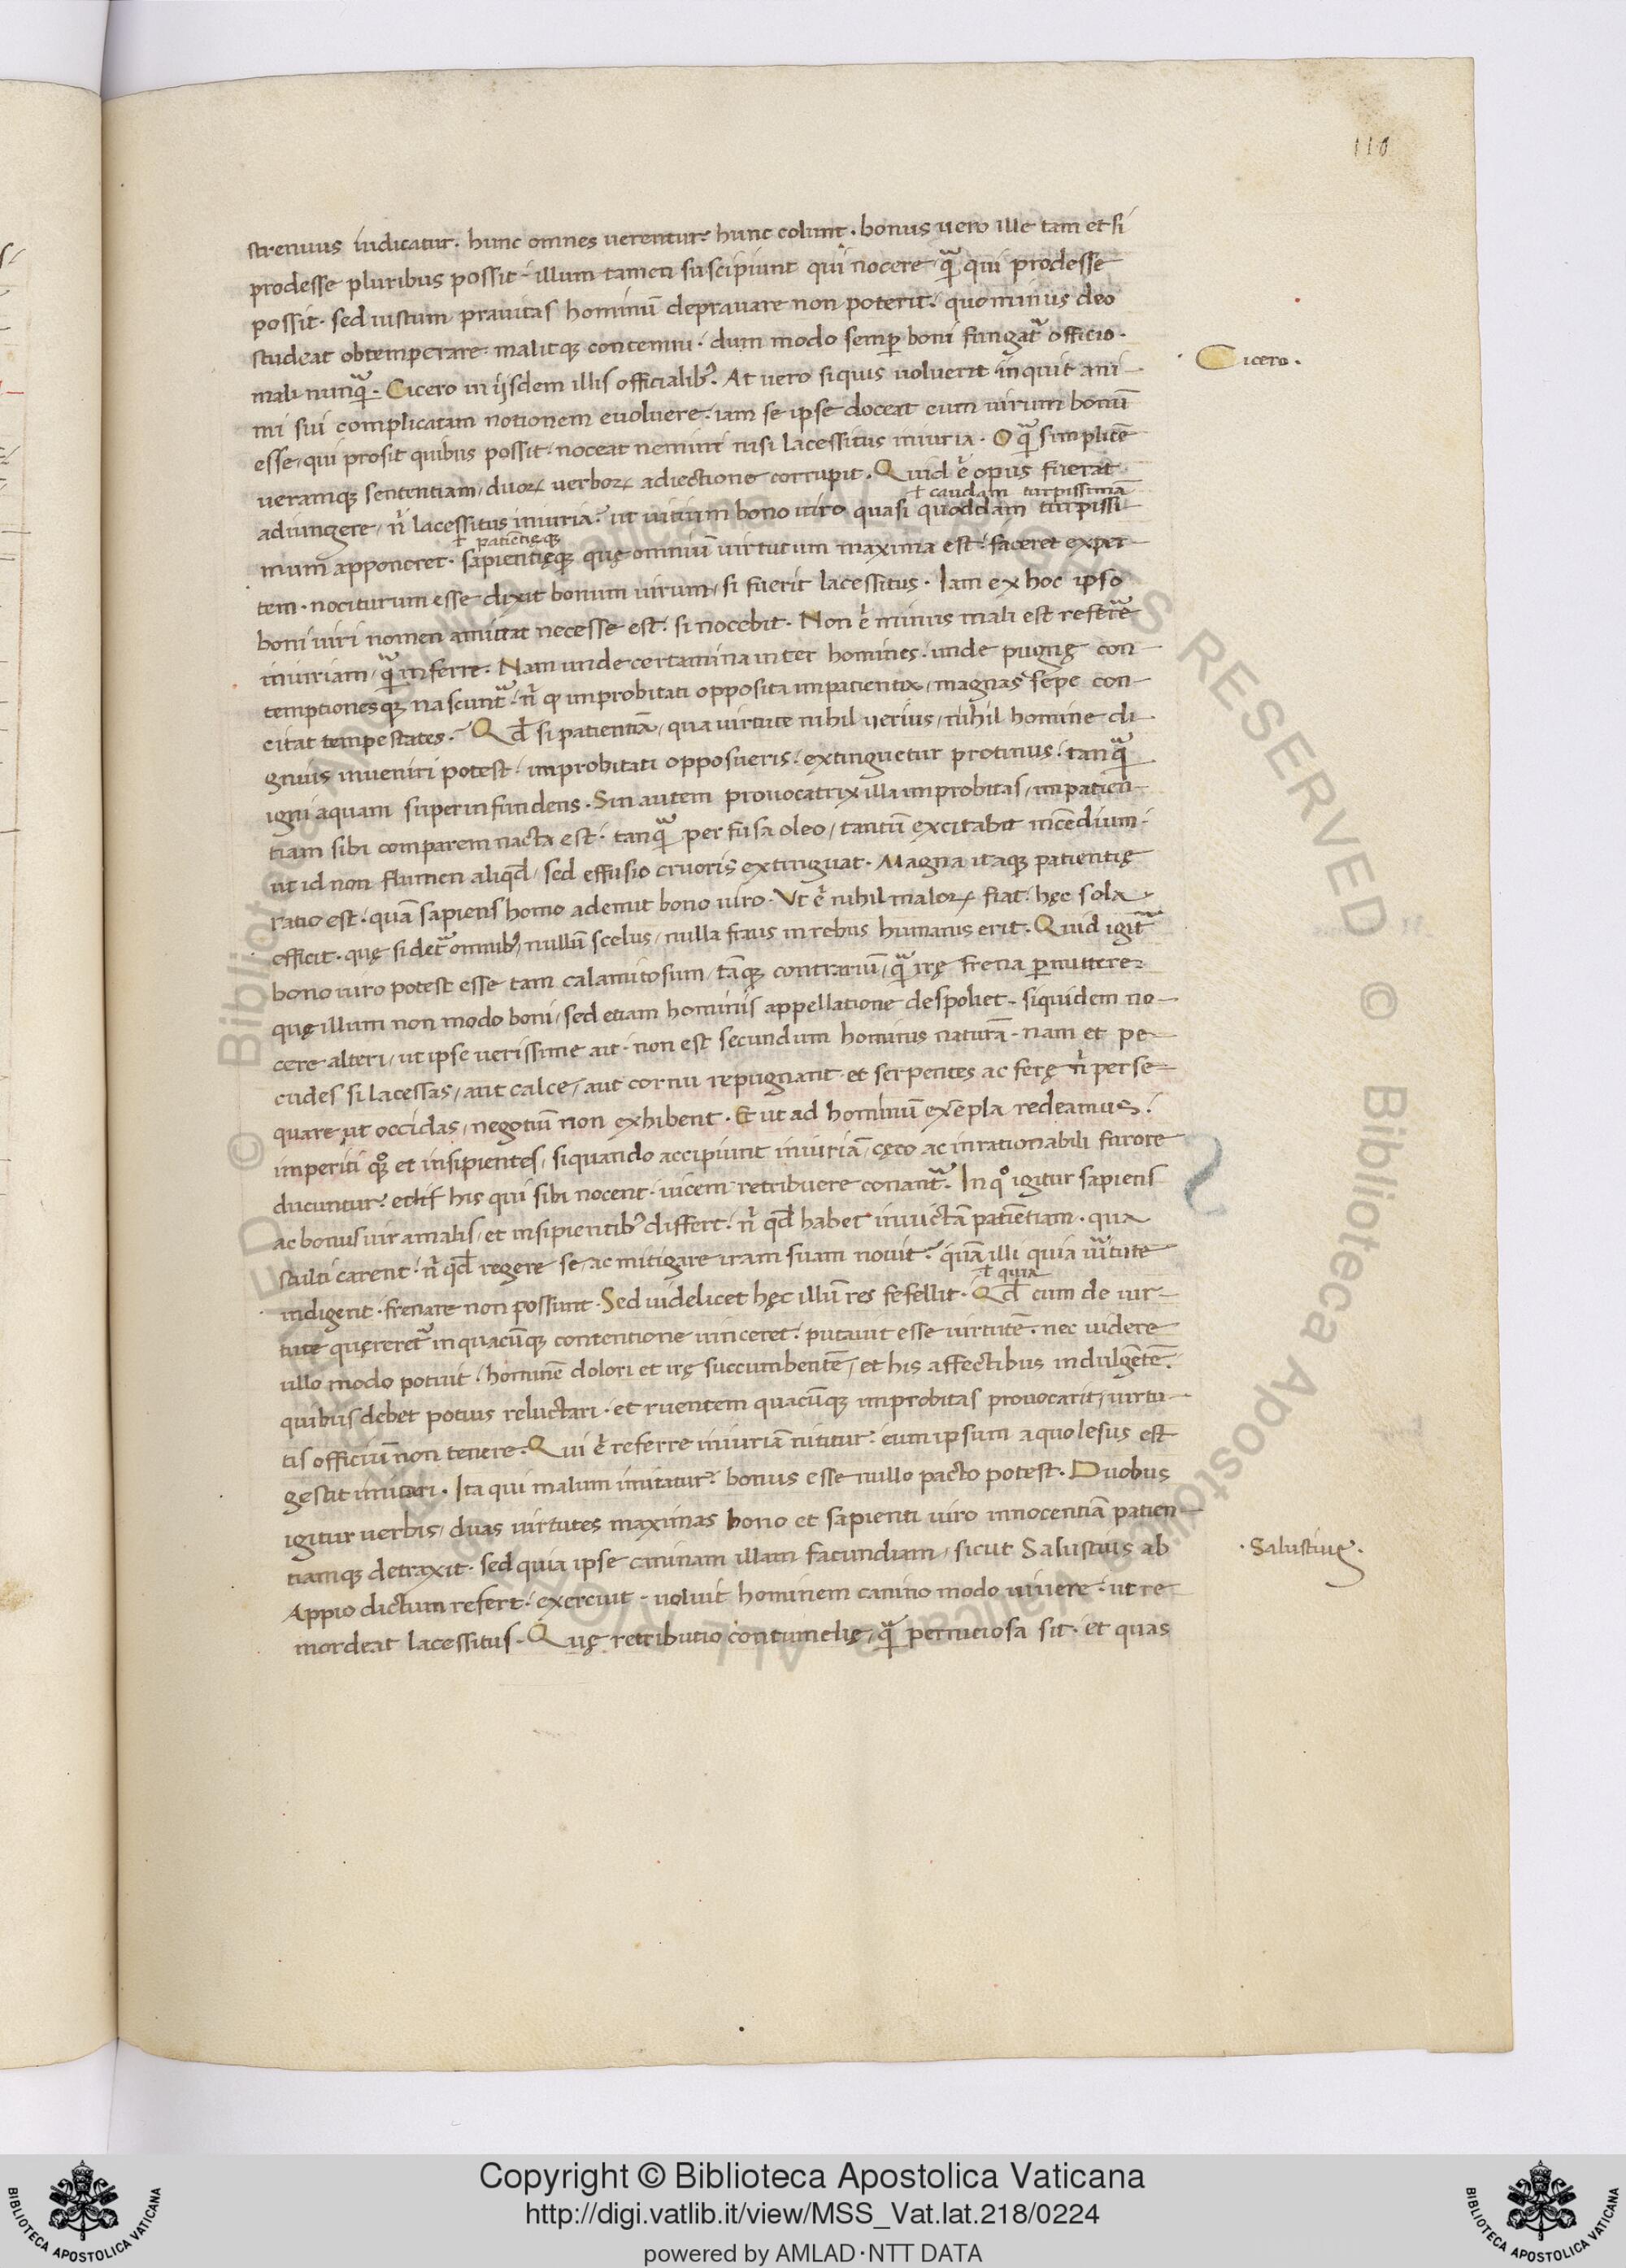 110
strenuus iudicatur. hunc omnes uerentur? hunc colunt. bonus uero ille tam et si
prodesse pluribus possit. illum tamen suscipiunt qui nocere, q̃ qui prodesse
possit. sed iustum prauitas hominū deprauare non poterit. quominus deo
studeat obtemperare. malitq; contemni. dum modo semp̱ boni fungat᷑ officio.
mali nunq̃. Cicero in ijsdem illis officialib᾽. At uero siquis uoluerit inquit ani-
Cicero.
mi sui complicatam notionem euoluere. iam se ipse doceat eum uirum bonū
esse, qui prosit quibus possit. noceat nemini nisi lacessitus iniuria. O q̃ simplicē
ueramq; sententiam, duoꝝ uerboꝝ adiectione corrupit. Quid .n. opus fuerat
ł caudam turpissimā
adiungere, ñ lacessitus iniuria? ut uitium bono uiro quasi quoddam turpissi-
ł patientięq;
mum apponeret. sapientięq; quę omniū uirtutum maxima est. faceret exper-
tem. nociturum esse dixit bonum uirum, si fuerit lacessitus. Iam ex hoc ipso
boni uiri nomen amittat necesse est. si nocebit. Non .n. minus mali est referre
iniuriam, q̃ inferre. Nam unde certamina inter homines. unde pugnę con-
temptionesq; nascunt᷑. ñ q improbitati opposita impatientia, magnas sepe con-
citat tempestates. Qđ si patientiā, qua uirtute nihil uerius, nihil homine di-
gnius inueniri potest. improbitati opposueris. extinguetur protinus. tanq̃
igni aquam superinfundens. Sin autem prouocatrix illa improbitas, impatien-
tiam sibi comparem nacta est. tanq̃ perfusa oleo, tantū excitabit incēdium.
ut id non flumen aliqđ, sed effusio cruoris extinguat. Magna itaq; patientię
ratio est. quā sapiens homo ademit bono uiro. Vt .n. nihil maloꝝ fiat. hęc sola
efficit. quę si det᷑ omnib᾽, nullū scelus, nulla fraus in rebus humanis erit. Quid igit᷑
bono uiro potest esse tam calamitosum, tāq; contrariū, q̃ irę frena p̱mittere.
quę illum non modo boni, sed etiam hominis appellatione despoliet. siquidem no-
cere alteri, ut ipse uerissime ait. non est secundum hominis naturā. nam et pe-
cudes si lacessas, aut calce, aut cornu repugnant. et serpentes ac ferę ñ perse-
quare ut occidas, negotiū non exhibent. Et ut ad hominū exēpla redeamus.
imperiti qͦ; et insipientes, siquando accipiunt iniuriā, cęco ac inrationabili furore
ducuntur. et his qui sibi nocent. uicem retribuere conant᷑. In qͦ igitur sapiens
ac bonus uir a malis, et insipientib᾽ differt. ñ qđ habet inuictā patiētiam. qua
stulti carent. ñ qđ regere se, ac mitigare iram suam nouit. quā illi quia uirtute
ł quia
indigent. frenare non possunt. Sed uidelicet hęc illū res fefellit. Qđ cum de uir-
tute quęreret᷑ in quacūq; contentione uinceret. putauit esse uirtutē. nec uidere
ullo modo potuit. hominē dolori et irę succumbentē, et his affectibus indulgētē.
quibus debet potius reluctari. et ruentem quacūq; improbitas prouocarit, uirtu-
tis officiū non tenere. Qui .n. referre iniuriā nititur. eum ipsum a quo lesus est
gestit imitari. Ita qui malum imitatur. bonus esse nullo pacto potest. Duobus
igitur uerbis, duas uirtutes maximas bono et sapienti uiro innocentiā patien-
tiamq; detraxit. sed quia ipse caninam illam facundiam, sicut Salustius ab
Salustius.
Appio dictum refert. exercuit. uoluit hominem canino modo uiuere. ut re-
mordeat lacessitus. Quę retributio contumelię, q̃ perniciosa sit. et quas
Copyright © Biblioteca Apostolica Vaticana
http://digi.vatlib.it/view/MSS_Vat.lat.218/0224
powered by AMLAD·NTT DATA